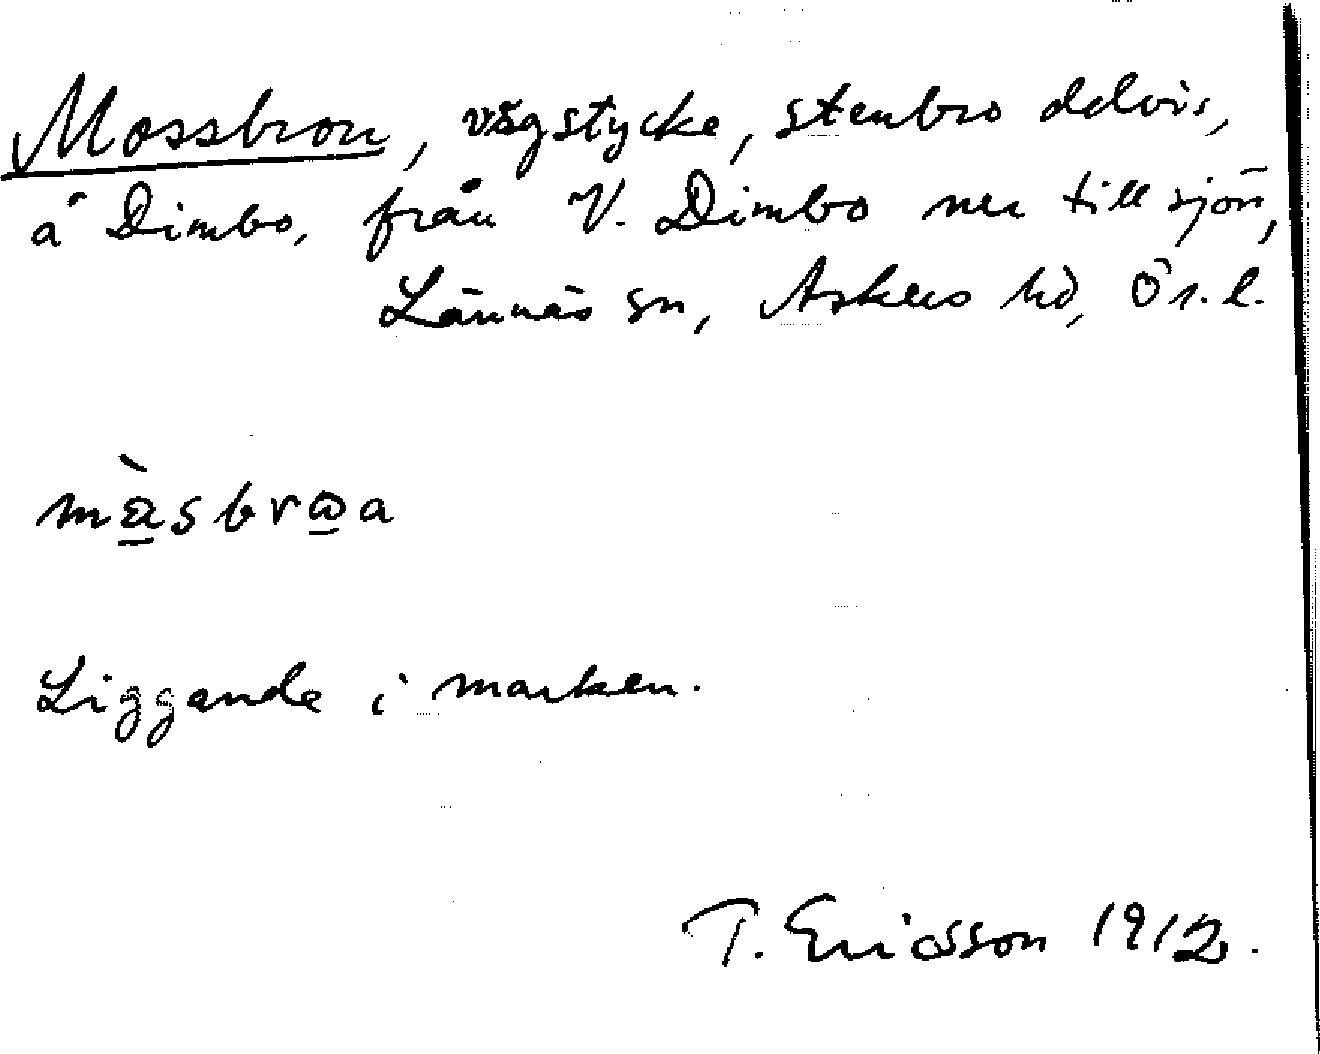 Mossbron, vägstycke, stenbro delvis,
å Dimbo, från V. Dimbo ner till sjön,
Lännäs sn, Askers hd, Ör. l.
mа̀sbrωa
Liggande i marken.
T. Ericsson 1912.